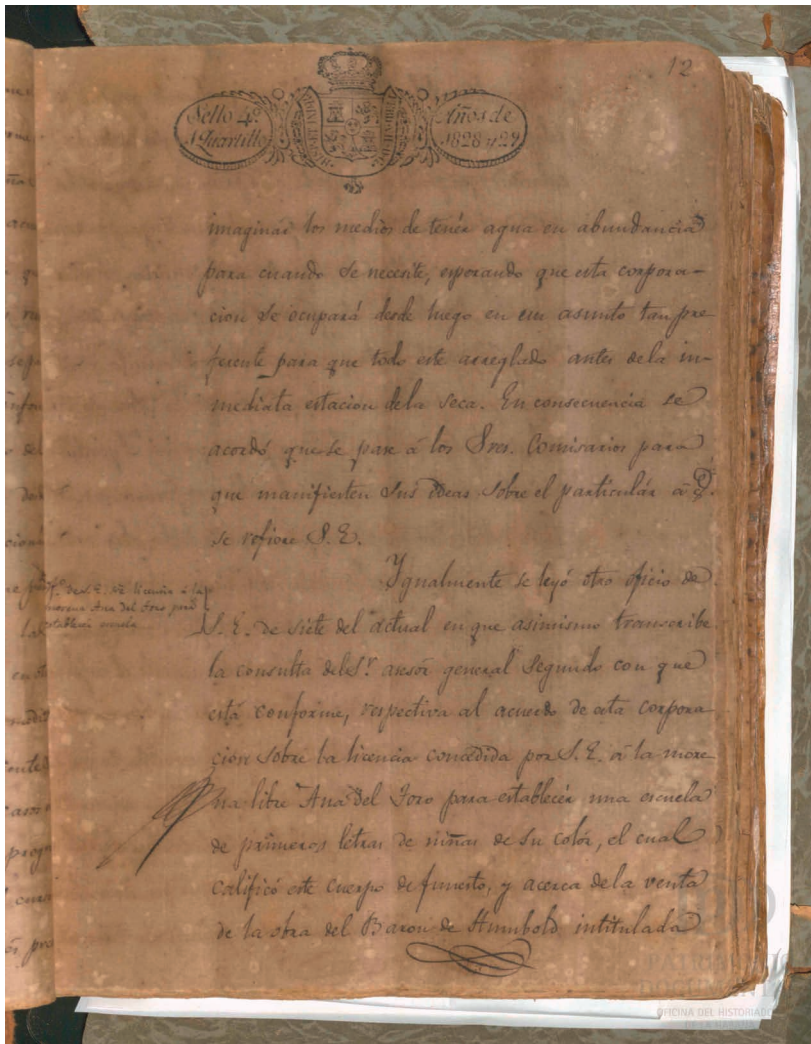 12
Sello 4º.
1 Quartillo
Años de
1828 y 29
imaginar los medios de tenér agua en abundancia
para cuando se necesite, esperando que esta corpora-
cion se ocupará desde luego en un asunto tan pre
ferente para que todo este arreglado antes dela in-
mediata estacion dela seca. En consecuencia se
acordó que se pase á los Sres. Comisarios para
que manifiesten sus ideas sobre el particulár á q.
se refiere S. E.
Ygualmente se leyó otro oficio de
S. E. de siete del actual en que asimismo transcribe
la consulta del Sr. asesór general segundo con que
está conforme, respectiva al acuerdo de esta corpora
ción sobre la licencia concedida por S. E. á la more
na libre Ana del Toro para establecér una escuela
de primeras letras de niñas de su colór, el cual
calificó este cuerpo de funesto, y acerca dela venta
de la obra del Baron de Humbold intitulada
licencia á la
morena Ana del Toro para
establecer escuela
PATRIMONIO
DOCUMENTAL
OFICINA DEL HISTORIADOR
DE LA HABANA